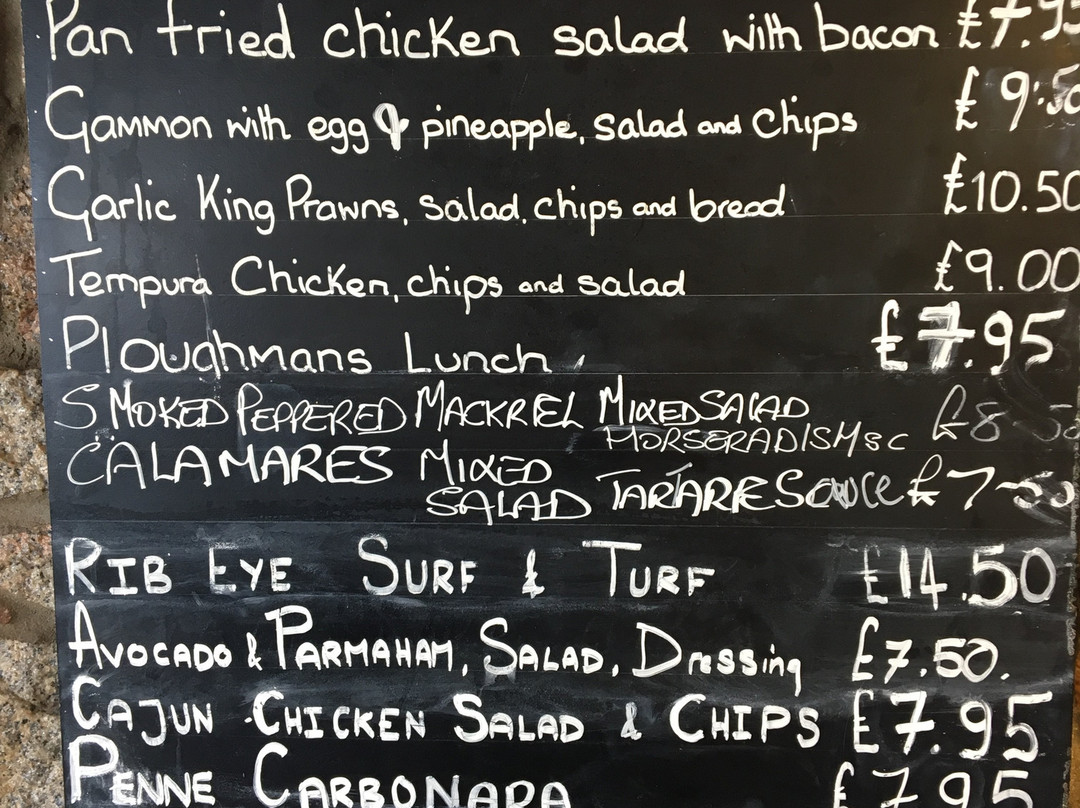 Pan fried chicken salad with bacon £7.95
Gammon with egg & pineapple, salad and chips £9.50
Garlic King Prawns, salad, chips and bread £10.50
Tempura Chicken, chips and salad £9.00
Ploughmans Lunch, £7.95
SMOKED PEPPERED MACKRIEL MIXED SALAD £8-50
HORSERADISH SC
CALAMARES MIXED
SALAD TARTARE Sauce £7-50
RIB EYE SURF & TURF £14.50
AVOCADO & PARMAHAM, SALAD, Dressing £7.50.
CAJUN CHICKEN SALAD & CHIPS £7.95
PENNE CARBONARA £7.95